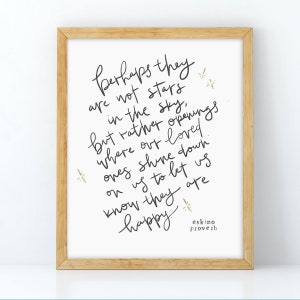 perhaps they
are not stars
in the sky,
but rather openings
where our loved
ones shine down
on us to let us
know they are
happy
eskimo
proverb